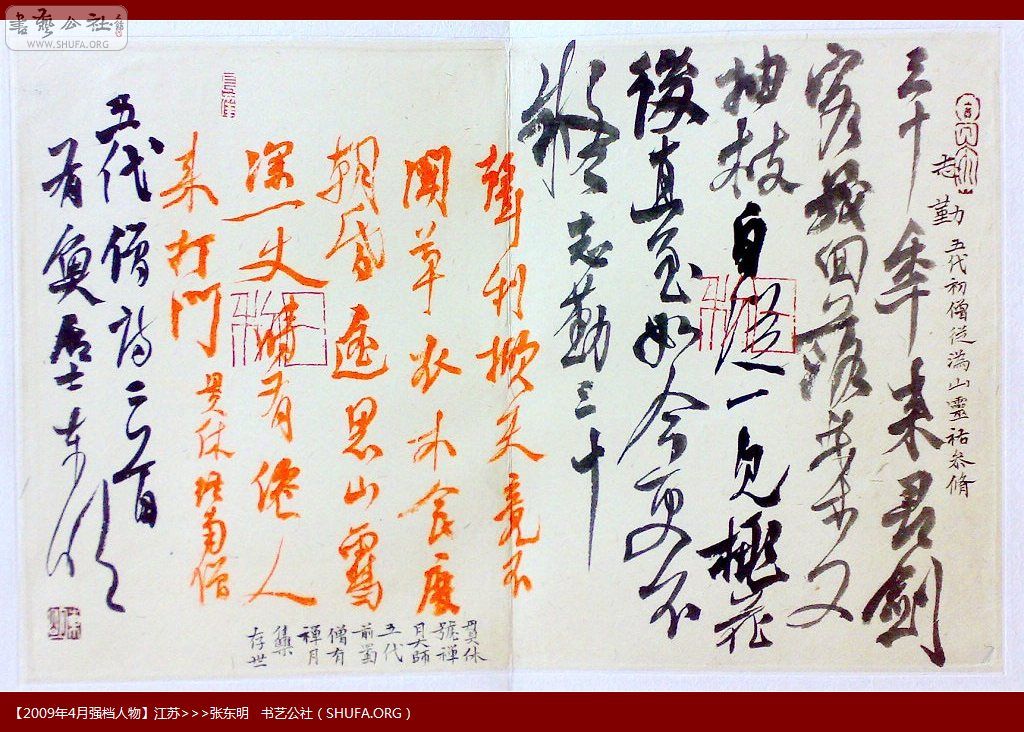 書藝公社
WWW.SHUFA.ORG
志勤 五代初僧從溈山靈祐參脩
三十季来尋劍
客幾回落葉又
抽枝自從一見桃花
後直至如今更不
疑 志勤三十
聲利掀天竟不
聞草衣木食度
朝昏遥思山雪
深一丈時有僊人
来打門 貫休終南僧
貫休
號禪
月大師
五代
前蜀
僧有
禪月
集
存世
五代僧詩二首
居士東明
【2009年4月强档人物】江苏>>>张东明 书艺公社（SHUFA.ORG）